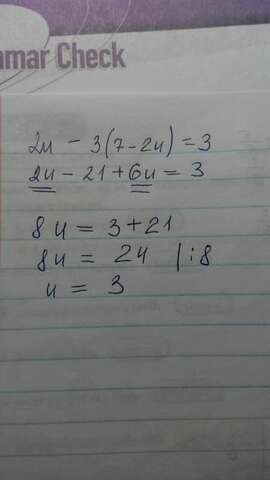 mmar Check
2u - 3(7-2u) = 3
2u - 21 + 6u = 3
8u = 3+21
8u = 24 | : 8
u = 3